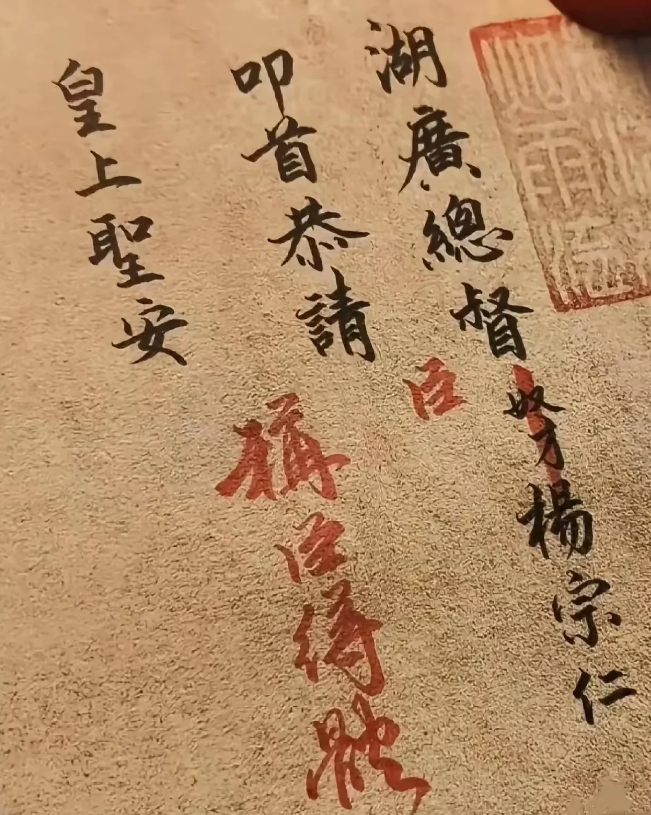 湖廣總督奴才楊宗仁
臣
叩首恭請
稱臣得體
皇上聖安